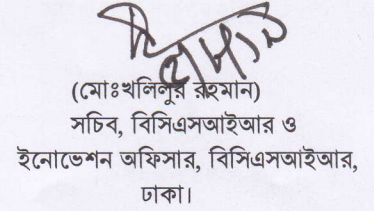 (মোঃখলিলুর রহমান)
সচিব, বিসিএসআইআর ও
ইনোভেশন অফিসার, বিসিএসআইআর,
ঢাকা।